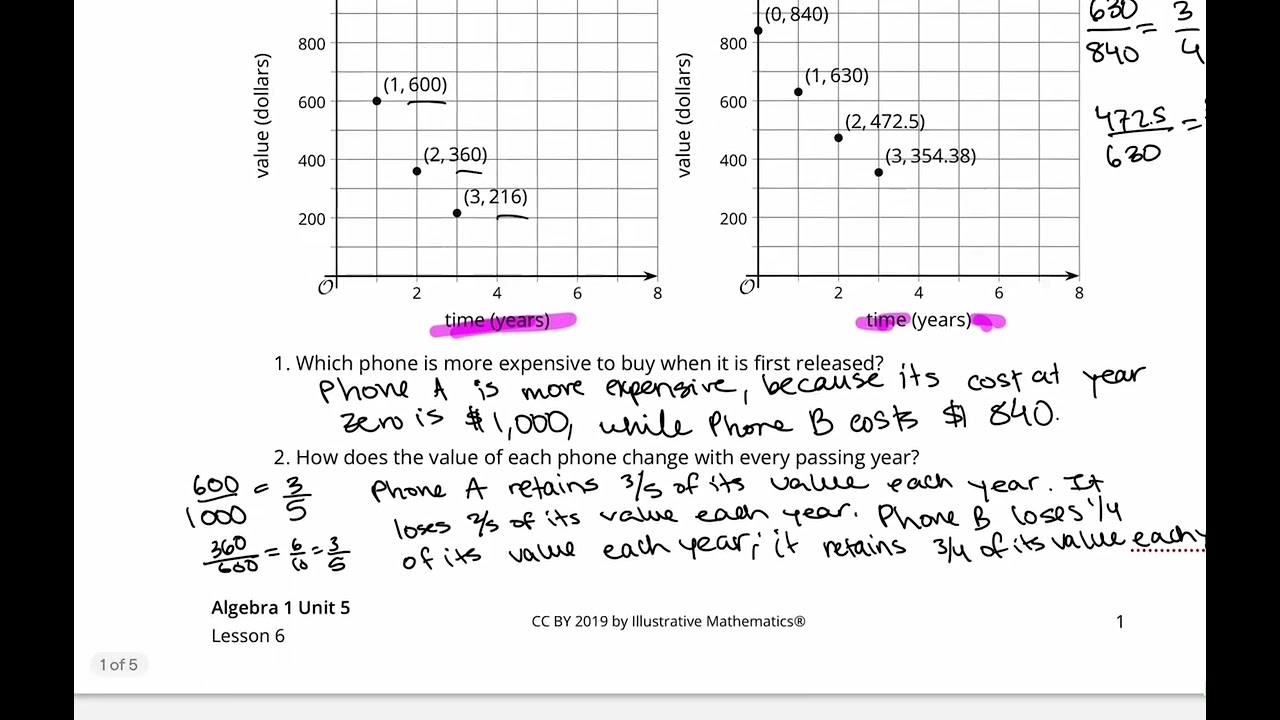 (0, 840)
630/840 = 3/4
800
800
value (dollars)
value (dollars)
(1, 600)
(1, 630)
600
600
472.5/630 =
(2, 360)
(2, 472.5)
400
400
(3, 216)
(3, 354.38)
200
200
O
2
4
6
8
O
2
4
6
8
time (years)
time (years)
1. Which phone is more expensive to buy when it is first released?
Phone A is more expensive, because its cost at year
zero is $1,000, while Phone B costs $ 840.
2. How does the value of each phone change with every passing year?
600/1000 = 3/5
Phone A retains 3/5 of its value each year. It
loses 2/5 of its value each year. Phone B loses 1/4
360/600 = 6/10 = 3/5
of its value each year; it retains 3/4 of its value each
Algebra 1 Unit 5
Lesson 6
CC BY 2019 by Illustrative Mathematics®
1
1 of 5